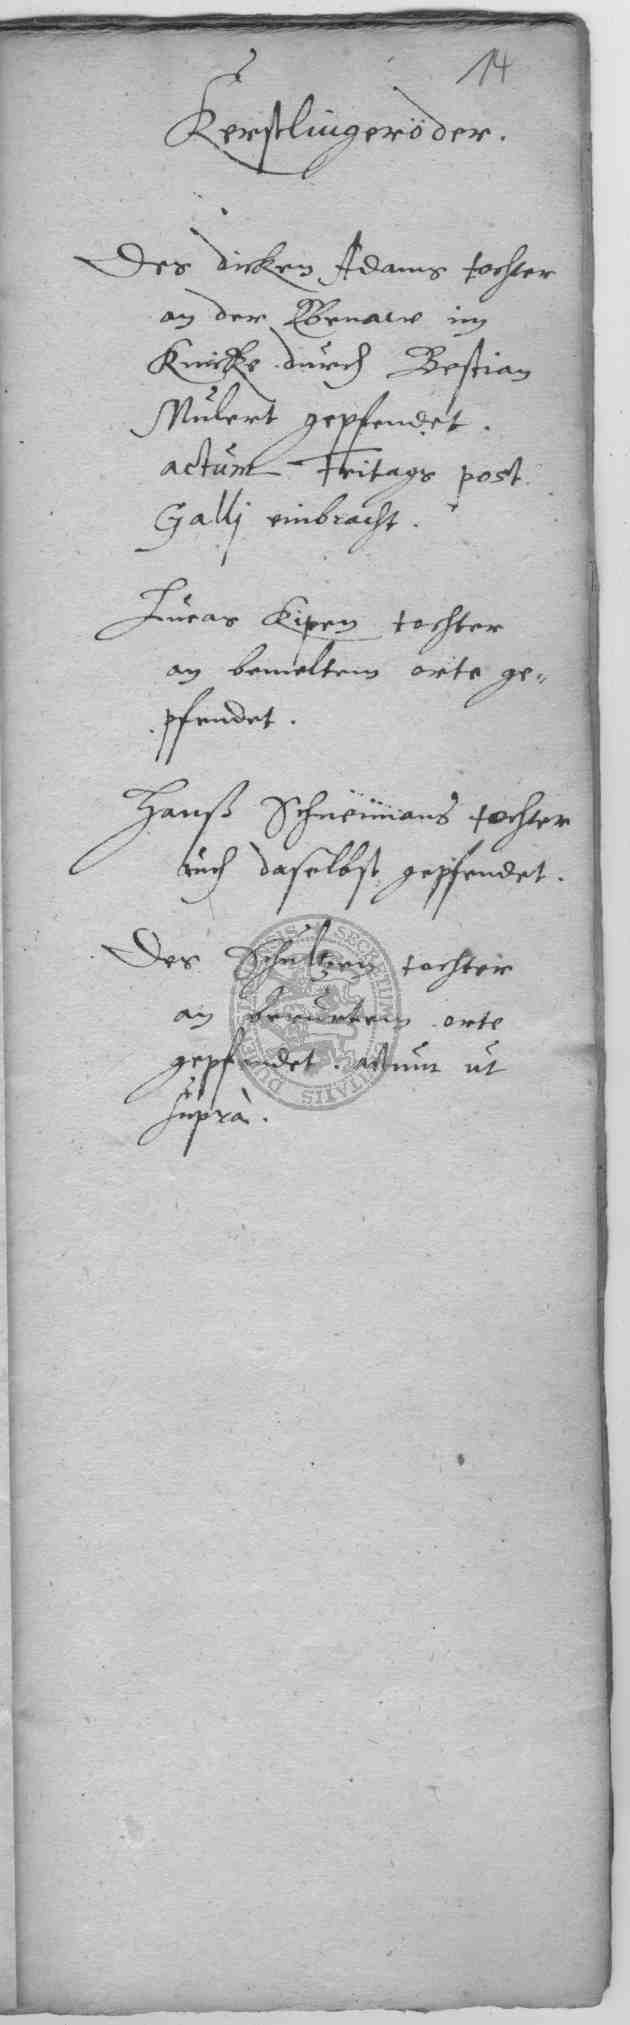 14
Kerstlingeröder.
Des dicken Adams tochter
an der Ebenaw im
Knicke durch Bestian
Mulert gepfendet.
actum Fritags post
Gallj einbracht.
Lucas Kipen tochter
an bemeltem orte ge-
pfendet.
Hanß Schnemans tochter
auch daselbst gepfendet.
Des Schultzen tochter
an berurtem orte
gepfendet. actum ut
supra.